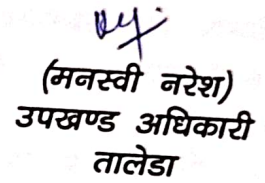 (मनस्वी नरेश)
उपखण्ड अधिकारी
तालेडा